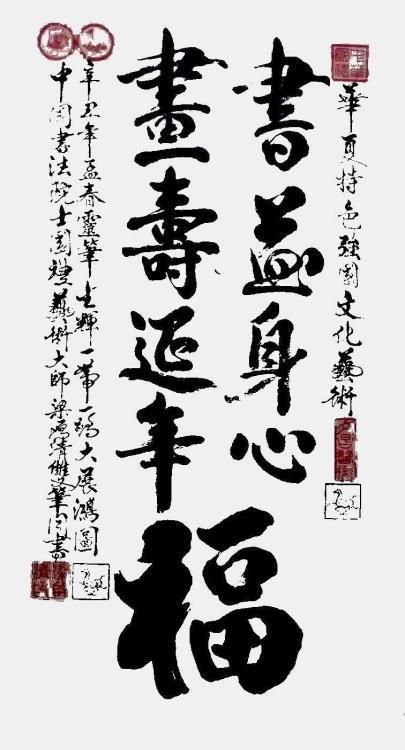 華夏特色強國文化藝術
書益身心
畫壽延年
福
辛丑年孟春靈筆生輝一帶一路大展鴻圖
中国書法院士國禮藝術大師梁雙筆同書